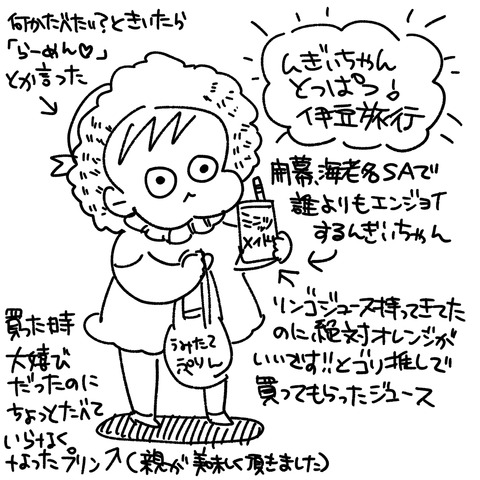 何かたべたい?ときいたら
「らーめん♡」
とか言った
んぎぃちゃん
とっぱつ!
伊豆旅行
開幕、海老名SAで
誰よりもエンジョイ
するんぎぃちゃん
ミニッツ
メイド
リンゴジュース持ってきてた
のに絶対オレンジが
いいです!!とゴリ推しで
買ってもらったジュース
うみたて
ぷりん
買った時
大喜び
だったのに
ちょっとたべて
いらなく
なったプリン(親が美味しく頂きました)